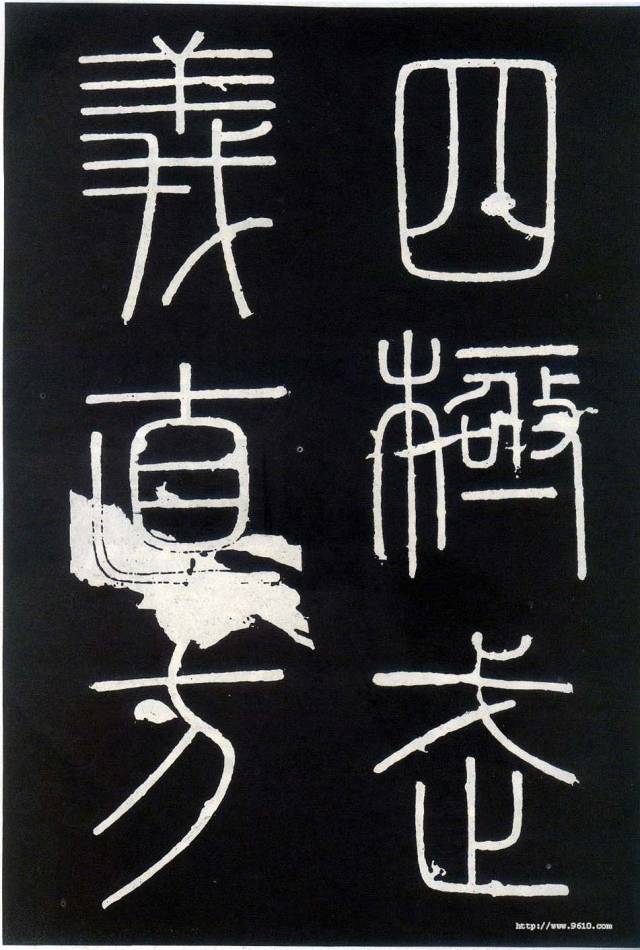 四極武
義直方
http://www.9610.com